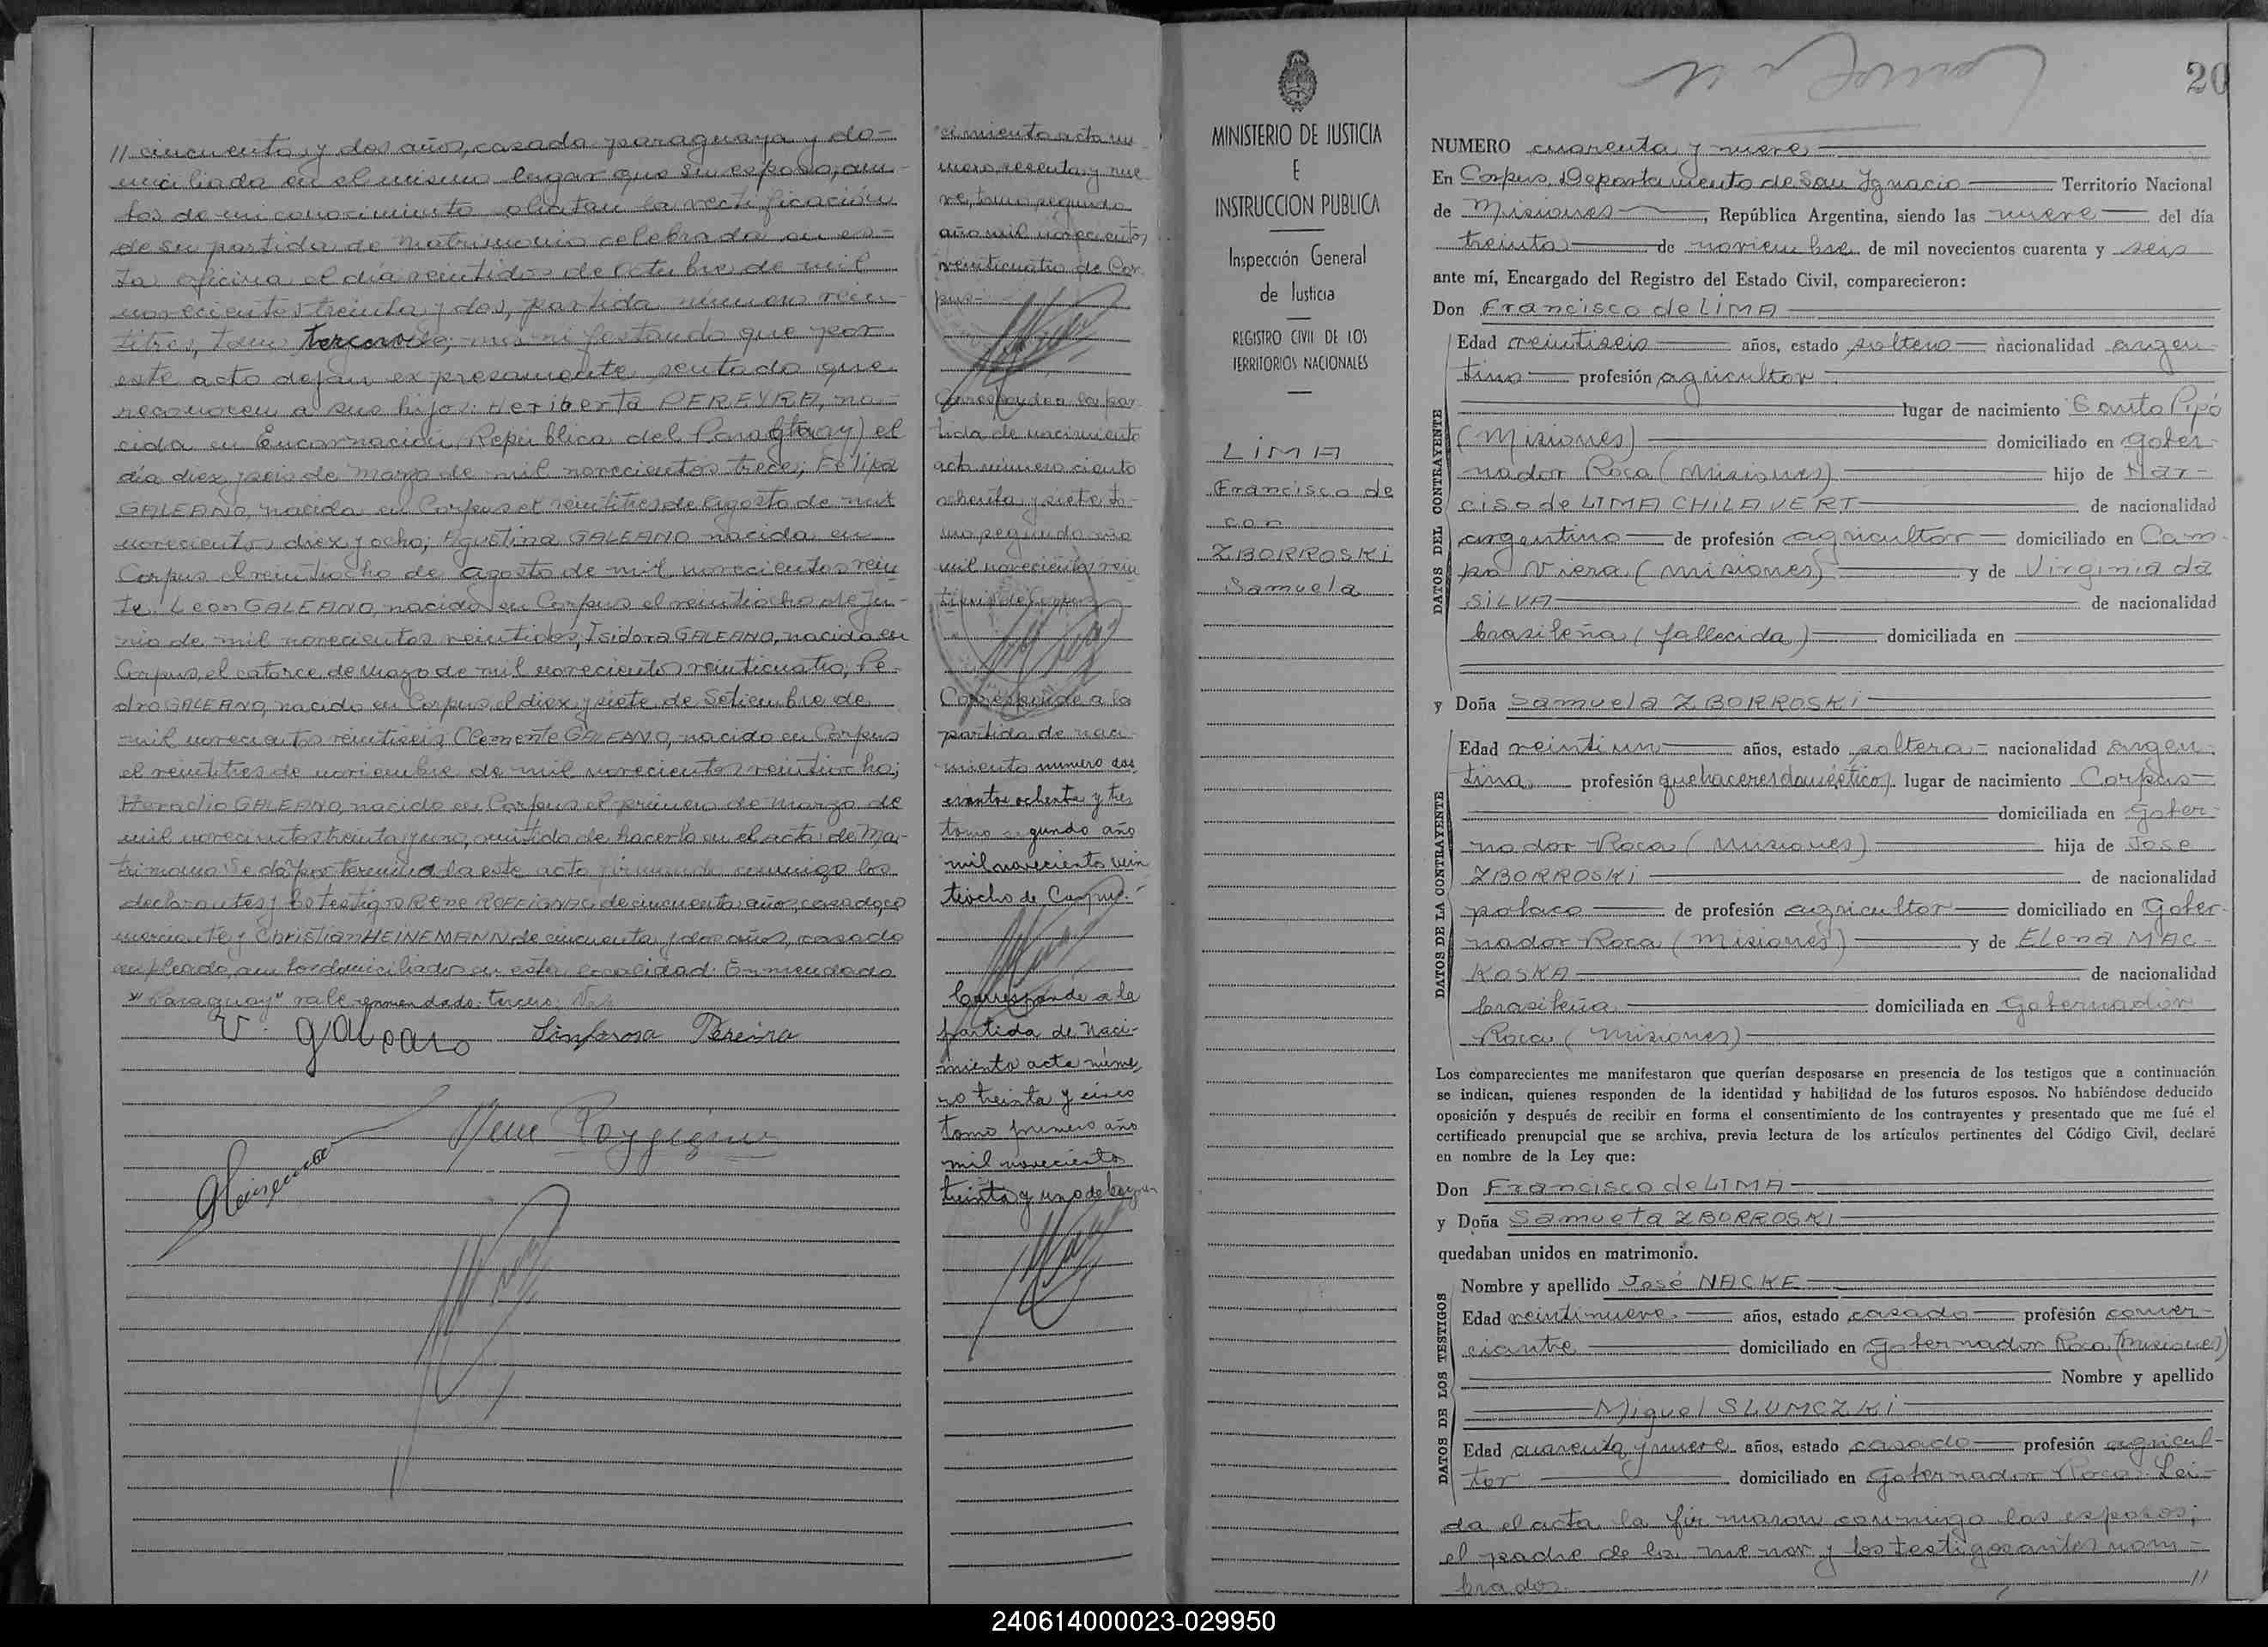 // cincuenta y dos años, casada paraguaya y do-
miciliada en el mismo lugar que su esposo, am-
bos de mi conocimiento solicitan la rectificación
de su partida de Matrimonio celebrada en es-
ta oficina el día veintidos de Octubre de mil
novecientos treinta y dos, partida número vein-
titres, tomo tercero, manifestando que por
este acto dejan expresamente sentado que
reconocen a sus hijos: Heriberta PEREYRA, na-
cida en Encarnación (República del Paraguay) el
día diez y seis de Marzo de mil novecientos trece; Felipa
GALEANO, nacida en Corpus el veintitres de Agosto de mil
novecientos diez y ocho; Agustina GALEANO nacida en
Corpus el veintiocho de Agosto de mil novecientos vein
te; Leon GALEANO, nacido en Corpus el veintiocho de Ju-
nio de mil novecientos veintidos; Isidora GALEANO, nacida en
Corpus, el catorce de Marzo de mil novecientos veinticuatro; Pe-
dro GALEANO, nacido en Corpus, el diez y siete de Setiembre de
mil novecientos veintiseis; Clemente GALEANO, nacido en Corpus
el veintitres de noviembre de mil novecientos veintiocho;
Horacio GALEANO, nacido en Corpus el primero de Marzo de
mil novecientos treinta y uno, omitido de hacerlo en el acta de Ma-
trimonio. Se da por terminada este acto firmando conmigo los
declarantes y los testigos Rene ROFFIGNAC de cincuenta años, casado, co
merciante y Christian HEINEMANN de cincuenta y dos años, casado
empleado, ambos domiciliados en esta localidad. Enmendado
"Paraguay" vale enmendado: tercero: Vale
V. galeano Sinforosa Pereira
Rene
cimiento acta nu-
mero sesenta y nue
ve, tomo segundo
año mil novecientos
veinticuatro de Cor-
pus-
Corresponde a la par
tida de nacimiento
acta número ciento
ochenta y siete to-
mo segundo año
mil novecientos vein
tiseis de Corpus
Corresponde a la
partida de naci-
miento numero dos
cientos ochenta y tres
tomo segundo año
mil novecientos vein
tiocho de Corpus.
Corresponde a la
partida de Naci-
miento acta núme-
ro treinta y cinco
tomo primero año
mil novecientos
treinta y uno de Corpus
MINISTERIO DE JUSTICIA
E
INSTRUCCION PUBLICA
Inspección General
de Justicia
REGISTRO CIVIL DE LOS
TERRITORIOS NACIONALES
LIMA
Francisco de
con
ZBORROSKI
Samuela
20
NUMERO cuarenta y nueve
En Corpus, Departamento de San Ignacio Territorio Nacional
de Misiones, República Argentina, siendo las nueve del día
treinta de noviembre de mil novecientos cuarenta y seis
ante mí, Encargado del Registro del Estado Civil, comparecieron:
Don Francisco de LIMA
DATOS DEL CONTRAYENTE
Edad veintiseis años, estado soltero nacionalidad argen-
tino profesión agricultor
lugar de nacimiento Santo Pipó
(Misiones) domiciliado en Gober-
nador Roca (Misiones) hijo de Nar-
ciso de LIMA CHILAVERT de nacionalidad
argentino de profesión agricultor domiciliado en Cam-
po Viera (Misiones) y de Virginia da
SILVA de nacionalidad
brasileña (fallecida) domiciliada en
y Doña Samuela ZBORROSKI
DATOS DE LA CONTRAYENTE
Edad veintiun años, estado soltera nacionalidad argen-
tina profesión quehaceres domésticos lugar de nacimiento Corpus
domiciliada en Gober-
nador Roca (Misiones) hija de Jose
ZBORROSKI de nacionalidad
polaco de profesión agricultor domiciliado en Gober-
nador Roca (Misiones) y de Elena MAC-
KOSKA de nacionalidad
brasileña domiciliada en Gobernador
Roca (Misiones)
Los comparecientes me manifestaron que querían desposarse en presencia de los testigos que a continuación
se indican, quienes responden de la identidad y habilidad de los futuros esposos. No habiéndose deducido
oposición y después de recibir en forma el consentimiento de los contrayentes y presentado que me fué el
certificado prenupcial que se archiva, previa lectura de los artículos pertinentes del Código Civil, declaré
en nombre de la Ley que:
Don Francisco de LIMA
y Doña Samuela ZBORROSKI
quedaban unidos en matrimonio.
DATOS DE LOS TESTIGOS
Nombre y apellido José NACKE
Edad veintinueve años, estado casado profesión comer-
ciante domiciliado en Gobernador Roca (Misiones)
Nombre y apellido
Miguel SLUMCZKI
Edad cuarenta y nueve años, estado casado profesión agricul-
tor domiciliado en Gobernador Roca. Lei-
da el acta la firmaron conmigo los esposos;
el padre de la menor y los testigos antes nom-
brados //
240614000023-029950